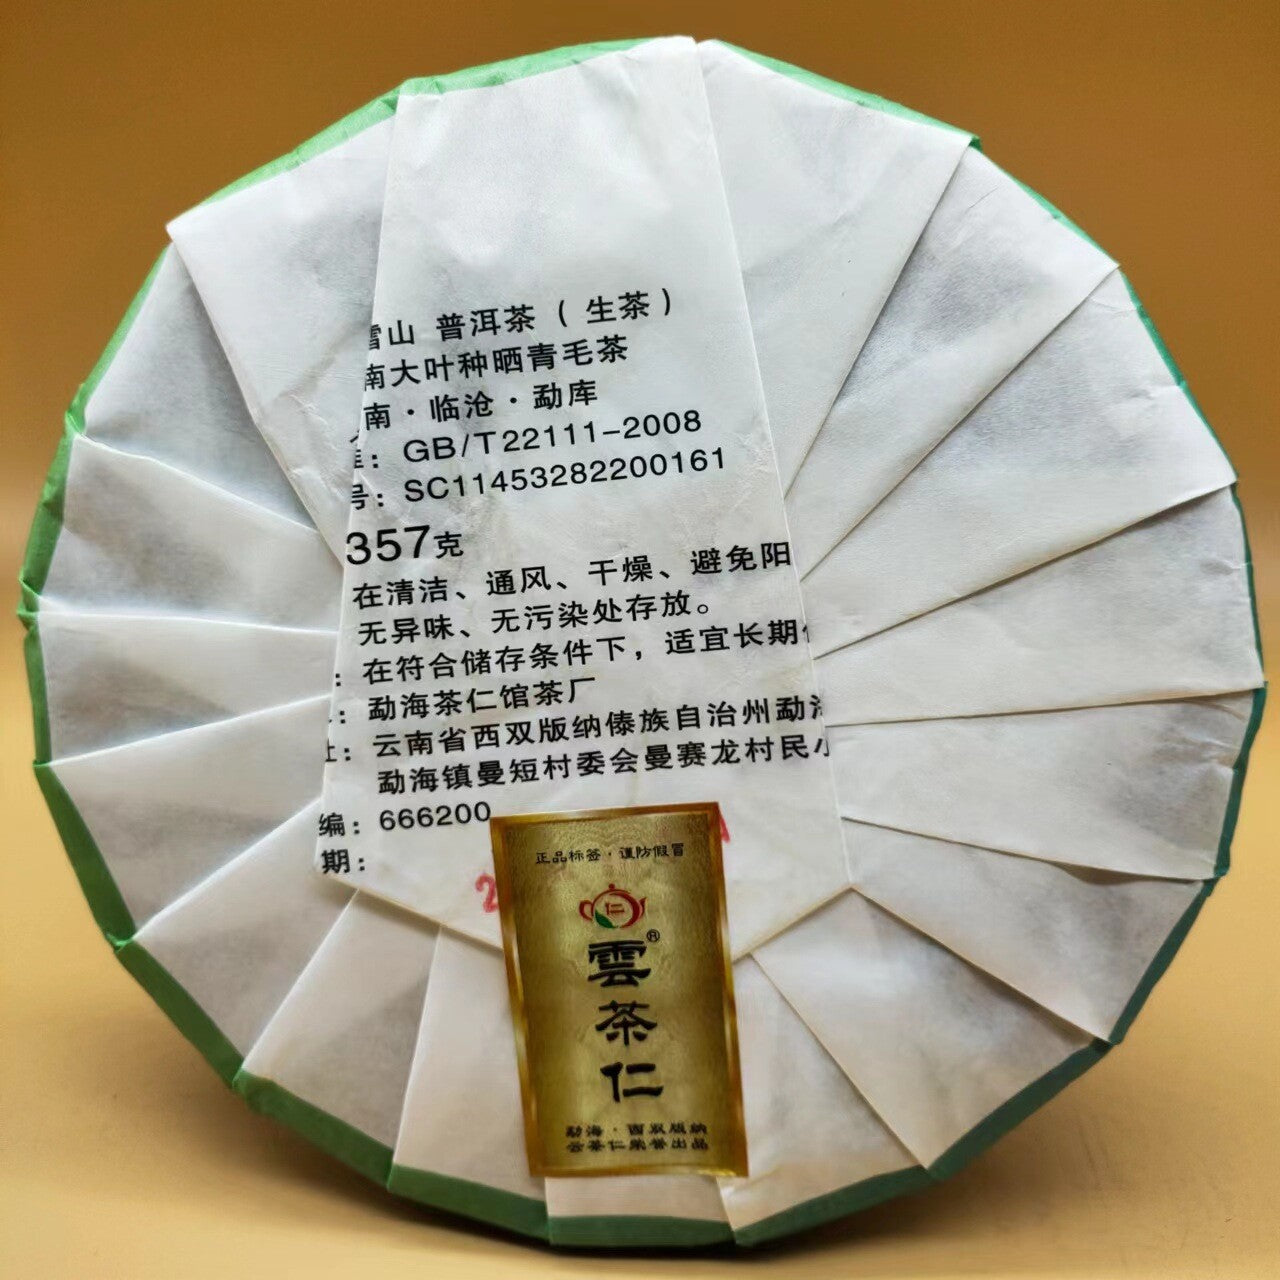 雪山 普洱茶（生茶）
南大叶种晒青毛茶
南·临沧·勐库
准：GB/T22111-2008
号：SC11453282200161
357克
在清洁、通风、干燥、避免阳
无异味、无污染处存放。
：在符合储存条件下，适宜长期
：勐海茶仁馆茶厂
址：云南省西双版纳傣族自治州勐海
勐海镇曼短村委会曼赛龙村民小
编：666200
期：
2
正品标签·谨防假冒
仁
雲茶仁®
勐海·西双版纳
云茶仁荣誉出品